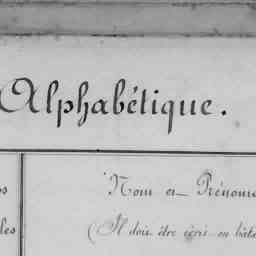 Alphabétique.
Nom et Prénoms
(Il doit être écrit en bâta
les